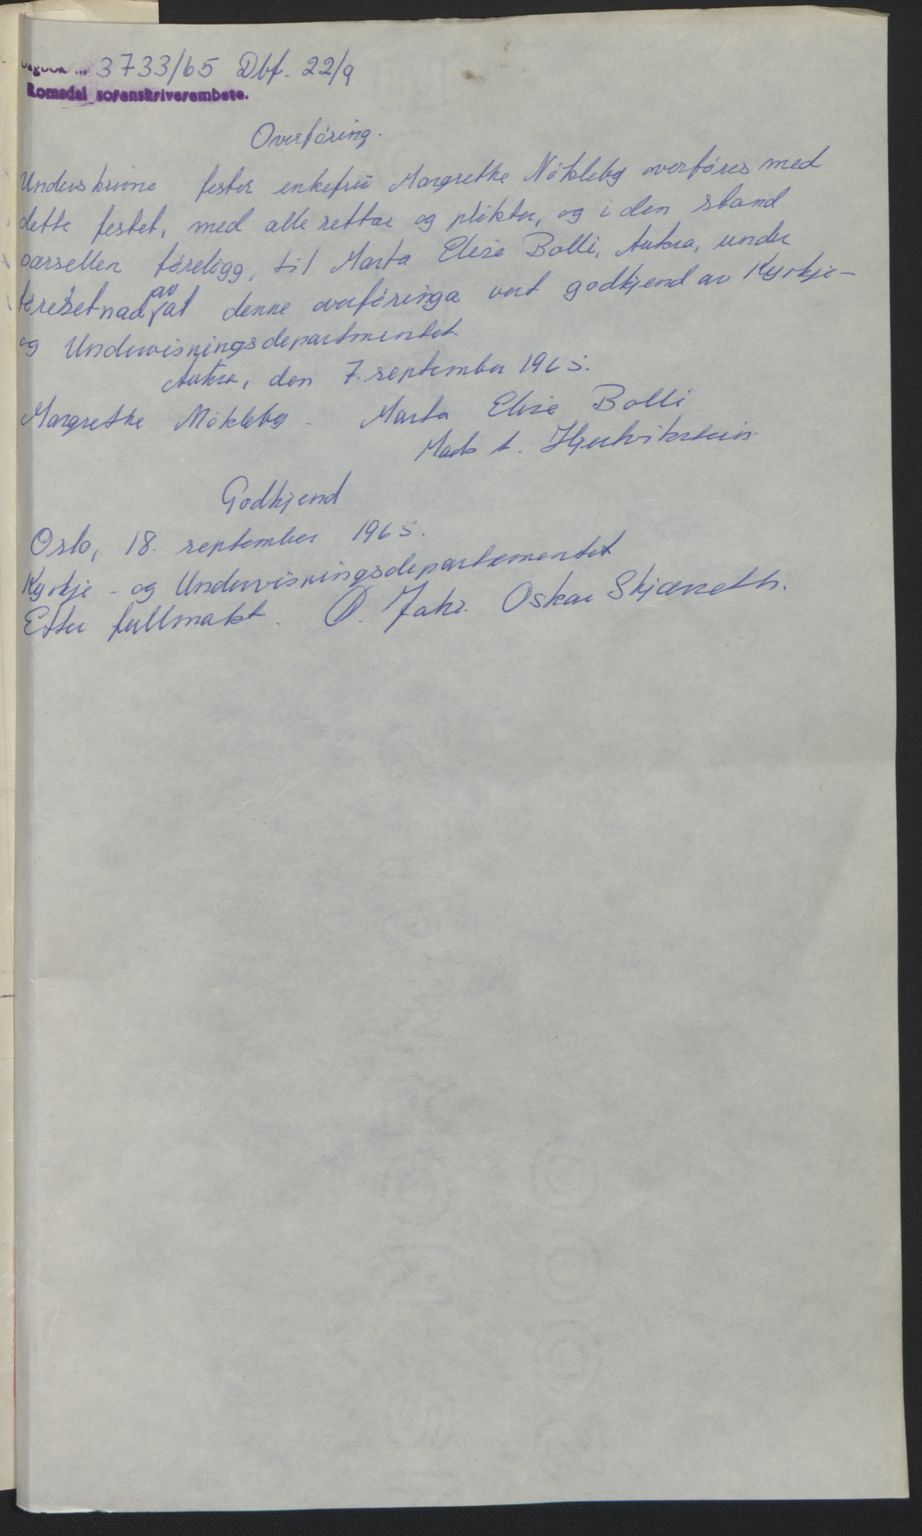 3733/65 Dbf. 22/9
Romsdal sorenskriverembete.
Overføring.
Underskrivne fester enkefru Margrethe Nökleby overføres med
dette festet, med alle rettar og plikter, og i den stand
parsellen føreligg, til Marta Elise Bolli, Aukra, under
føresetnad av at denne overføringa vert godkjend av Kyrkje-
og Undervisningsdepartmentet.
Aukra, den 7. september 1965.
Margrethe Nökleby. Marta Elise Bolli
Mads t.
Godkjend
Oslo, 18. september 1965.
Kyrkje- og Undervisningsdepartementet
Etter fullmakt. O. Jahr. Oskar Skjærseth.